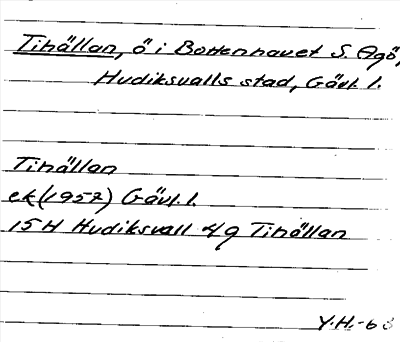 Tihällan, ö i Bottenhavet S. Agö,
Hudiksvalls stad, Gävl. l.
Tihällan
ek (1957) Gävl. l.
15H Hudiksvall 4/9 Tihällan
Y.H.-63